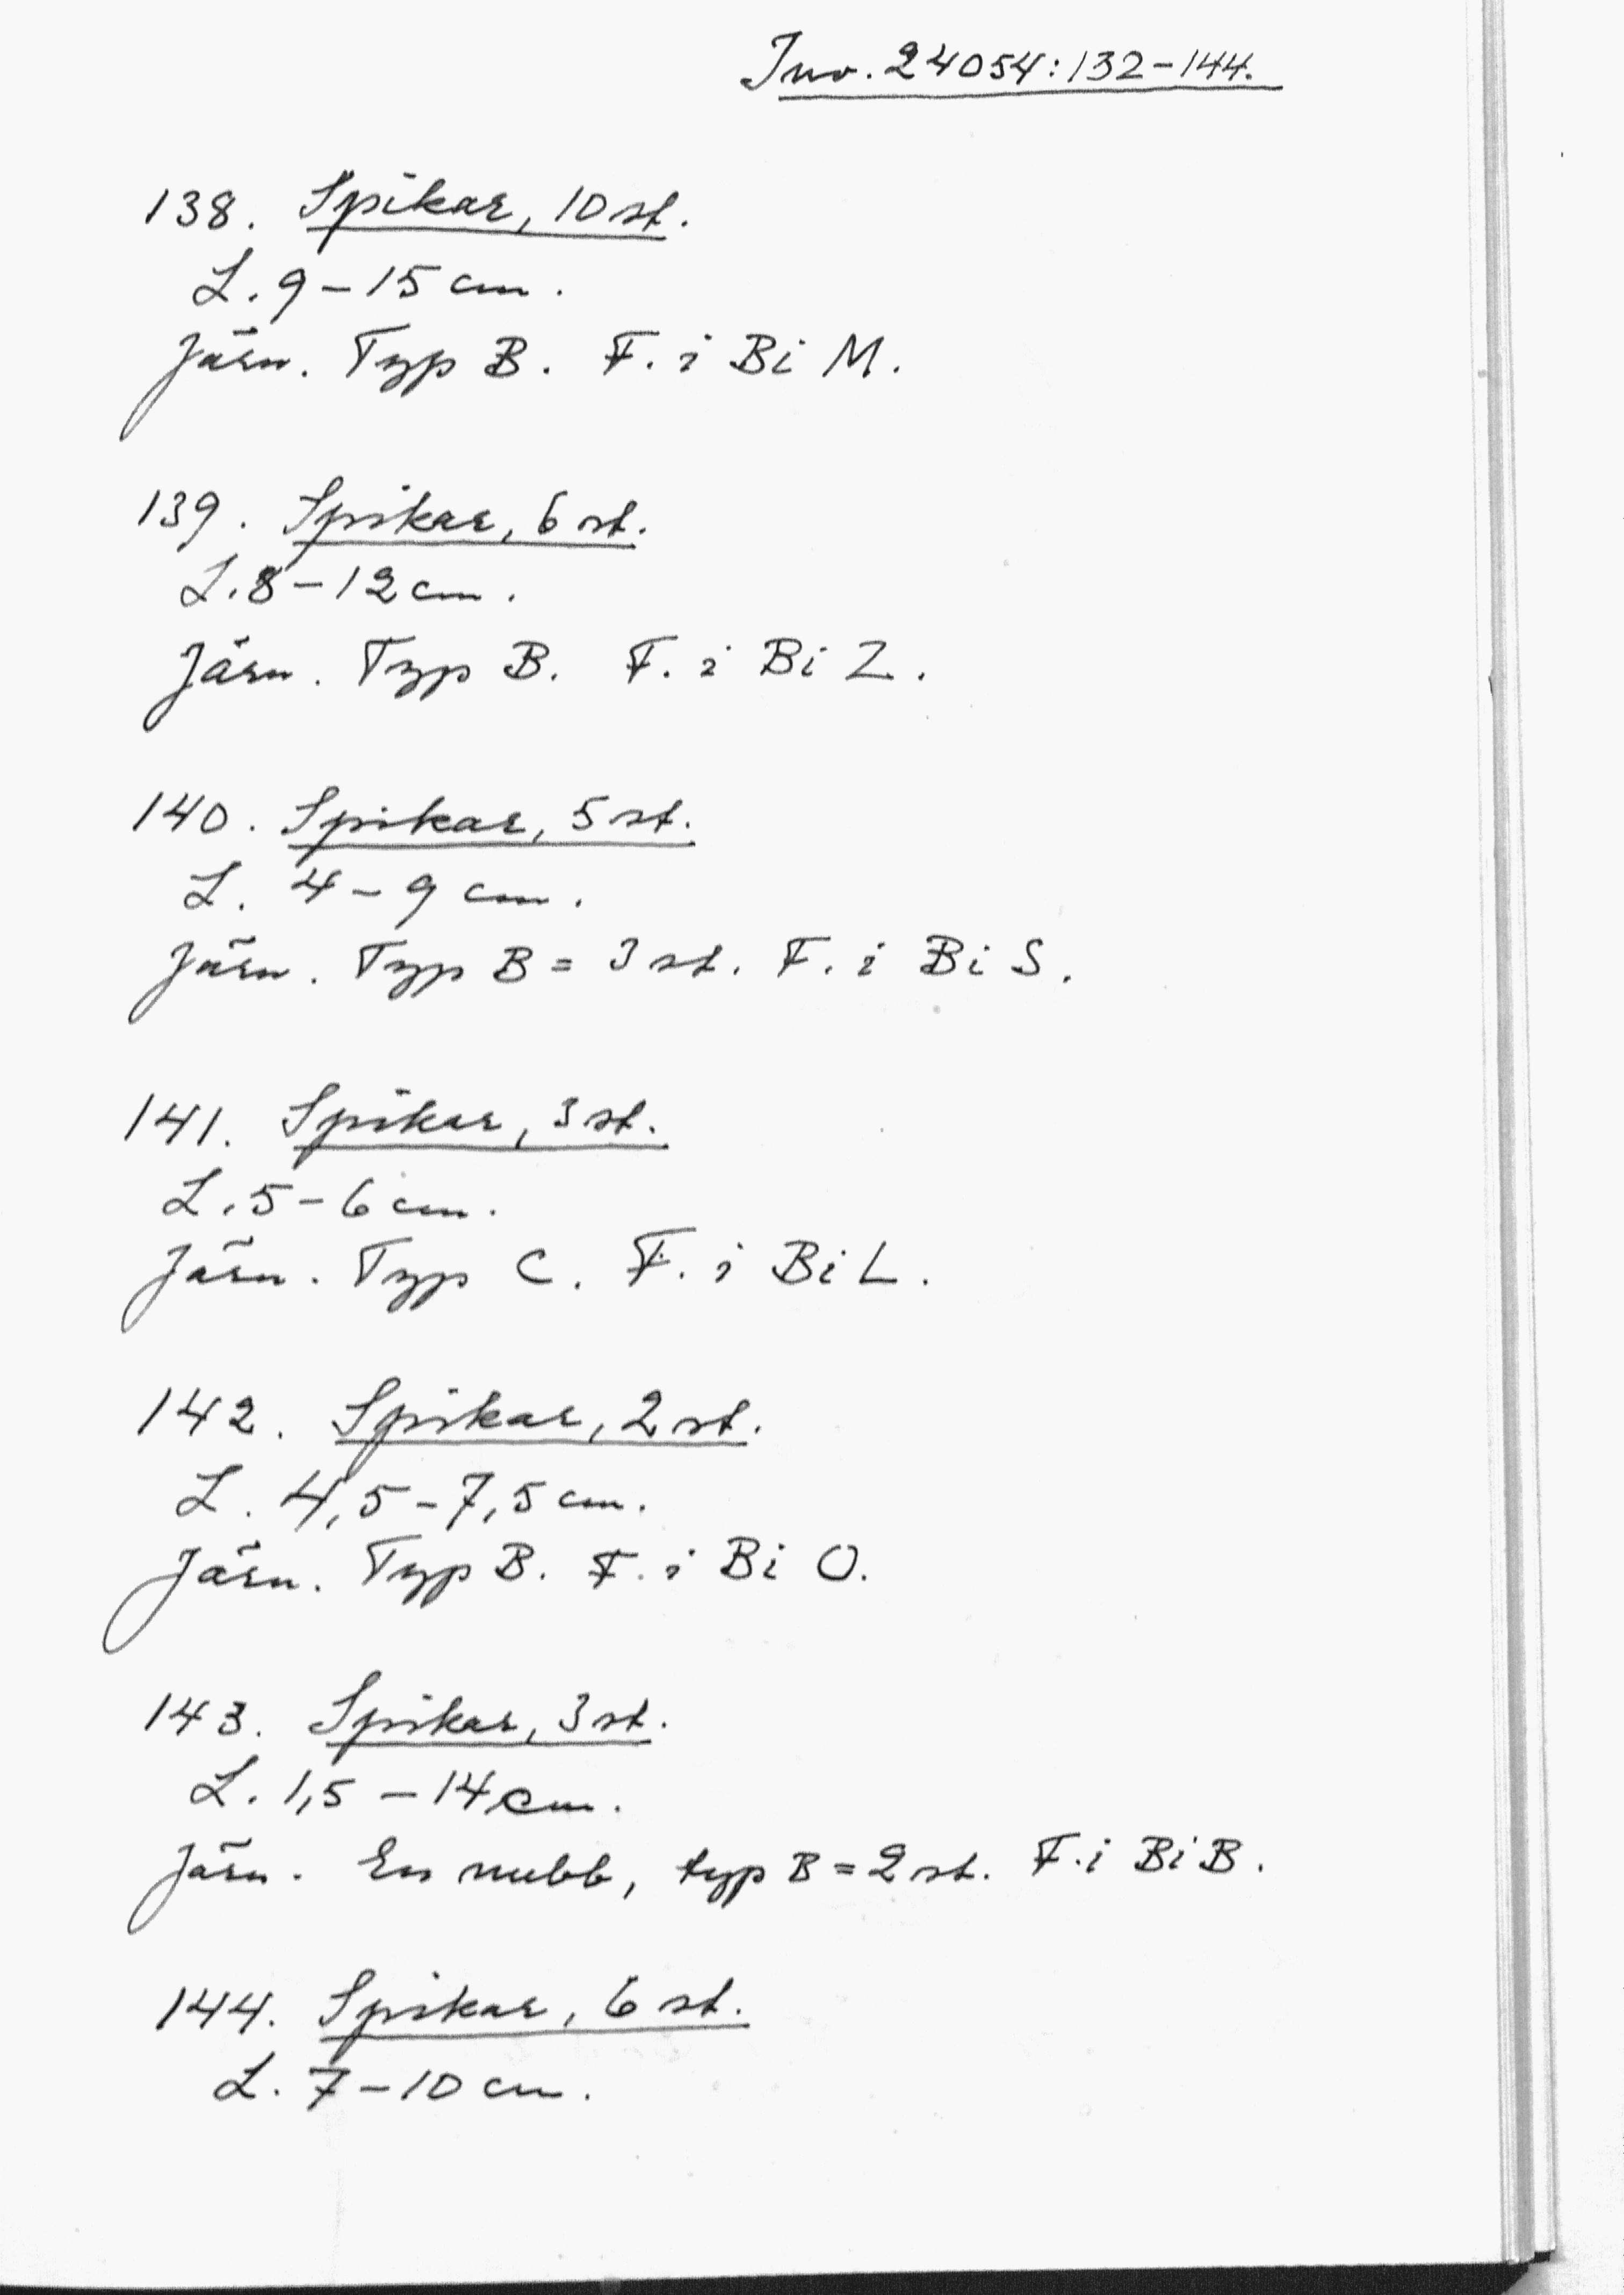 Inv. 24054:132-144.
138. Spikar, 10 st.
L. 9-15 cm.
Järn. Typ B. F. i Bi M.
139. Spikar, 6 st.
L. 8-12 cm.
Järn. Typ B. F. i Bi Z.
140. Spikar, 5 st.
L. 4-9 cm.
Järn. Typ B = 3 st. F. i Bi S.
141. Spikar, 3 st.
L. 5-6 cm.
Järn. Typ C. F. i Bi L.
142. Spikar, 2 st.
L. 4,5-7,5 cm.
Järn. Typ B. F. i Bi O.
143. Spikar, 3 st.
L. 1,5-14 cm.
Järn. En nubb, typ B = 2 st. F. i Bi B.
144. Spikar, 6 st.
L. 7-10 cm.